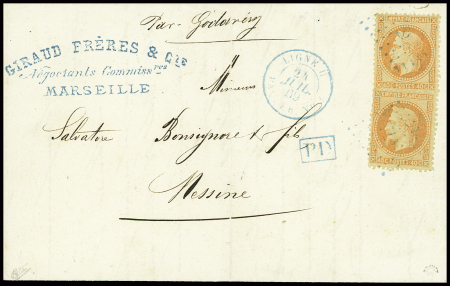 Par Godavéry
GIRAUD FRÈRES & Cie
Négociants Commissres
MARSEILLE
LIGNE
28
JUIL
Messieurs
Salvatore Bonsignore & fils
PD
Messine
EMPIRE FRANÇAIS
EMPIRE FRANÇAIS